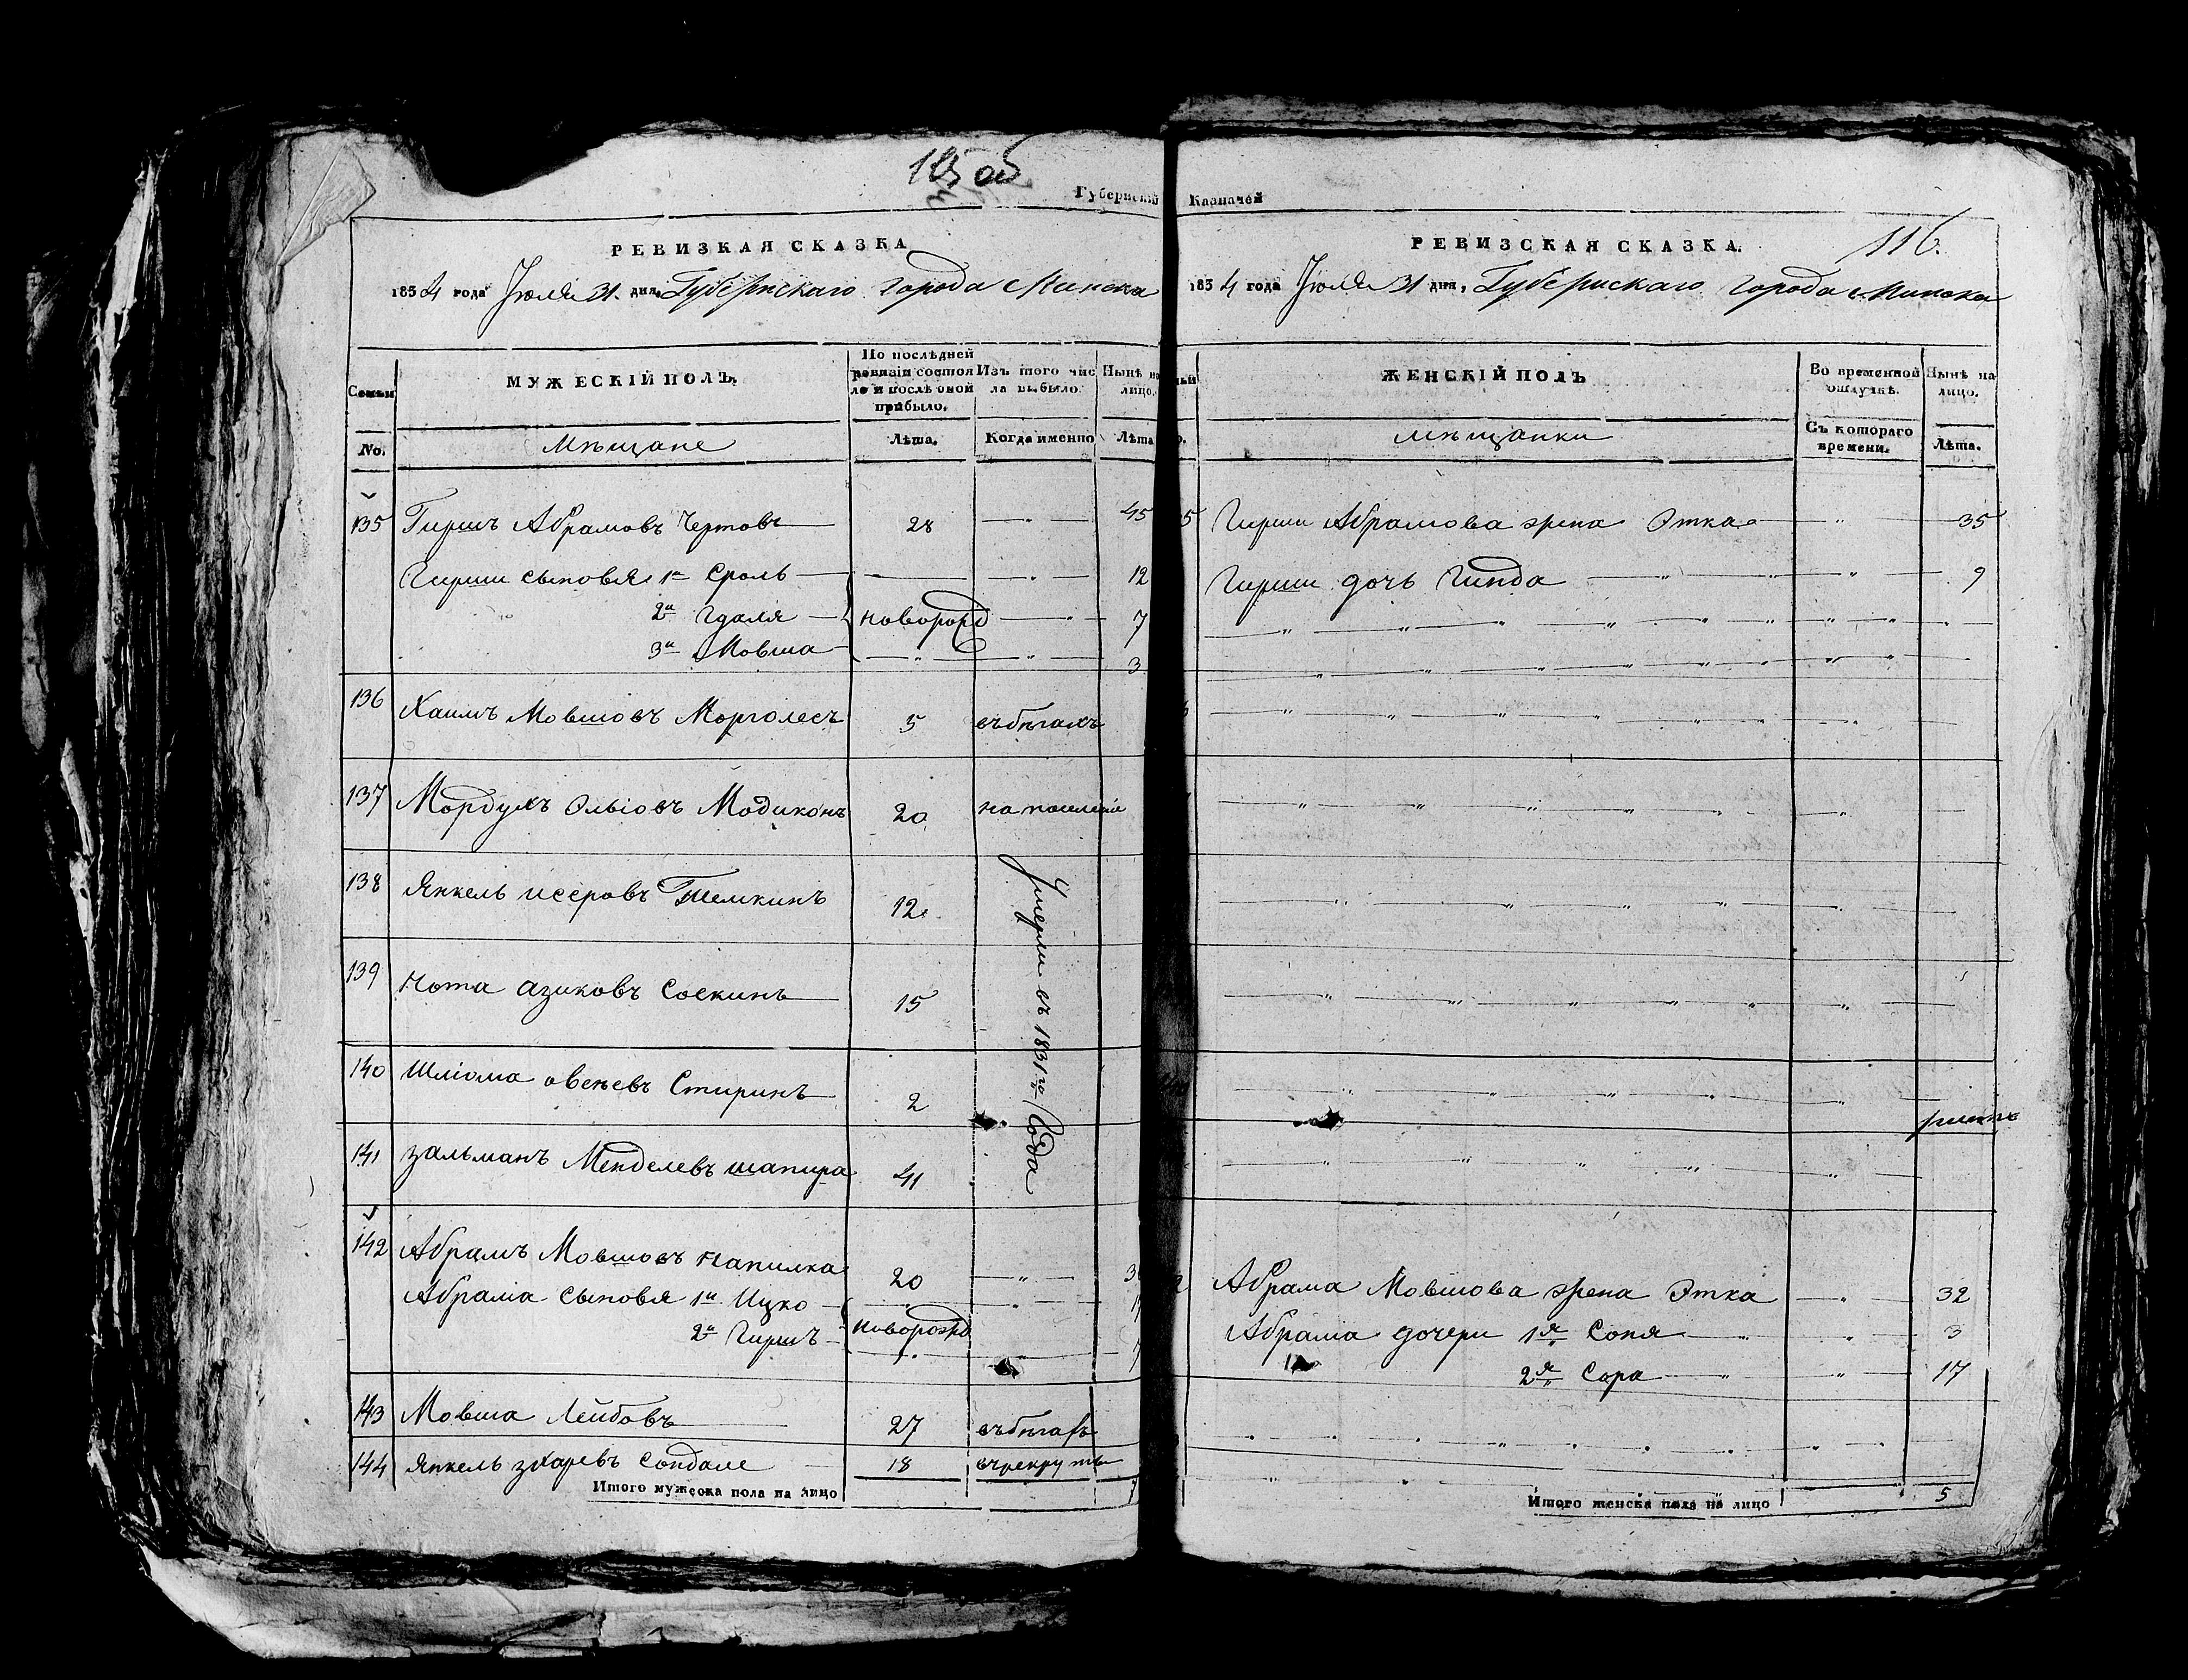 115 об
Губернскій
РЕВИЗКАЯ СКАЗКА
1834 года Іюля 31 дня, Губернскаго города Минска
Семьи
МУЖЕСКІЙ ПОЛЪ,
По послѣдней ревизіи состояло и послѣ оной прибыло.
Изъ того числа выбыло.
Нынѣ на лицо.
No.
Мѣщане
Лѣта.
Когда именно
Лѣта
135 Гиршъ Абрамовъ Чертовъ 28 45
Гирши сыновья 1й Сроль 12
2й Гдаля новорожд 7
3й Мовша 3
136 Хаимъ Мовшовъ Морголесъ 5 въ бѣгахъ
137 Мордухъ Ольіовъ Модиконъ 20 на поселеніе
138 Янкель Исеровъ Темкинъ 12
139 Нота Азиковъ Соскинъ 15
Умерли въ 1831го Года
140 Шліома Овсеевъ Стиринъ 2
141 Зальманъ Менделевъ Шапира 41
142 Абрамъ Мовшовъ Папилка 20
Абрама сыновья 1й Ицко
2й Гиршъ новорожд
143 Мовша Лейбовъ 27 въ бѣгахъ
144 Янкель Зхаревъ Сондале 18 въ рекруты
Итого мужеска пола на лицо 7
Казначей
РЕВИЗСКАЯ СКАЗКА.
116.
1834 года Іюля 31 дня, Губернскаго города Минска
ЖЕНСКІЙ ПОЛЪ
Во временной отлучкѣ.
Нынѣ на лицо.
мѣщанки
Съ котораго времени.
Лѣта.
5 Гирши Абрамова жена Этка 35
Гирши дочь Гинда 9
2 Абрама Мовшова жена Этка 32
Абрама дочери 1я Соня 3
2я Сора 17
Итого женска пола на лицо 5